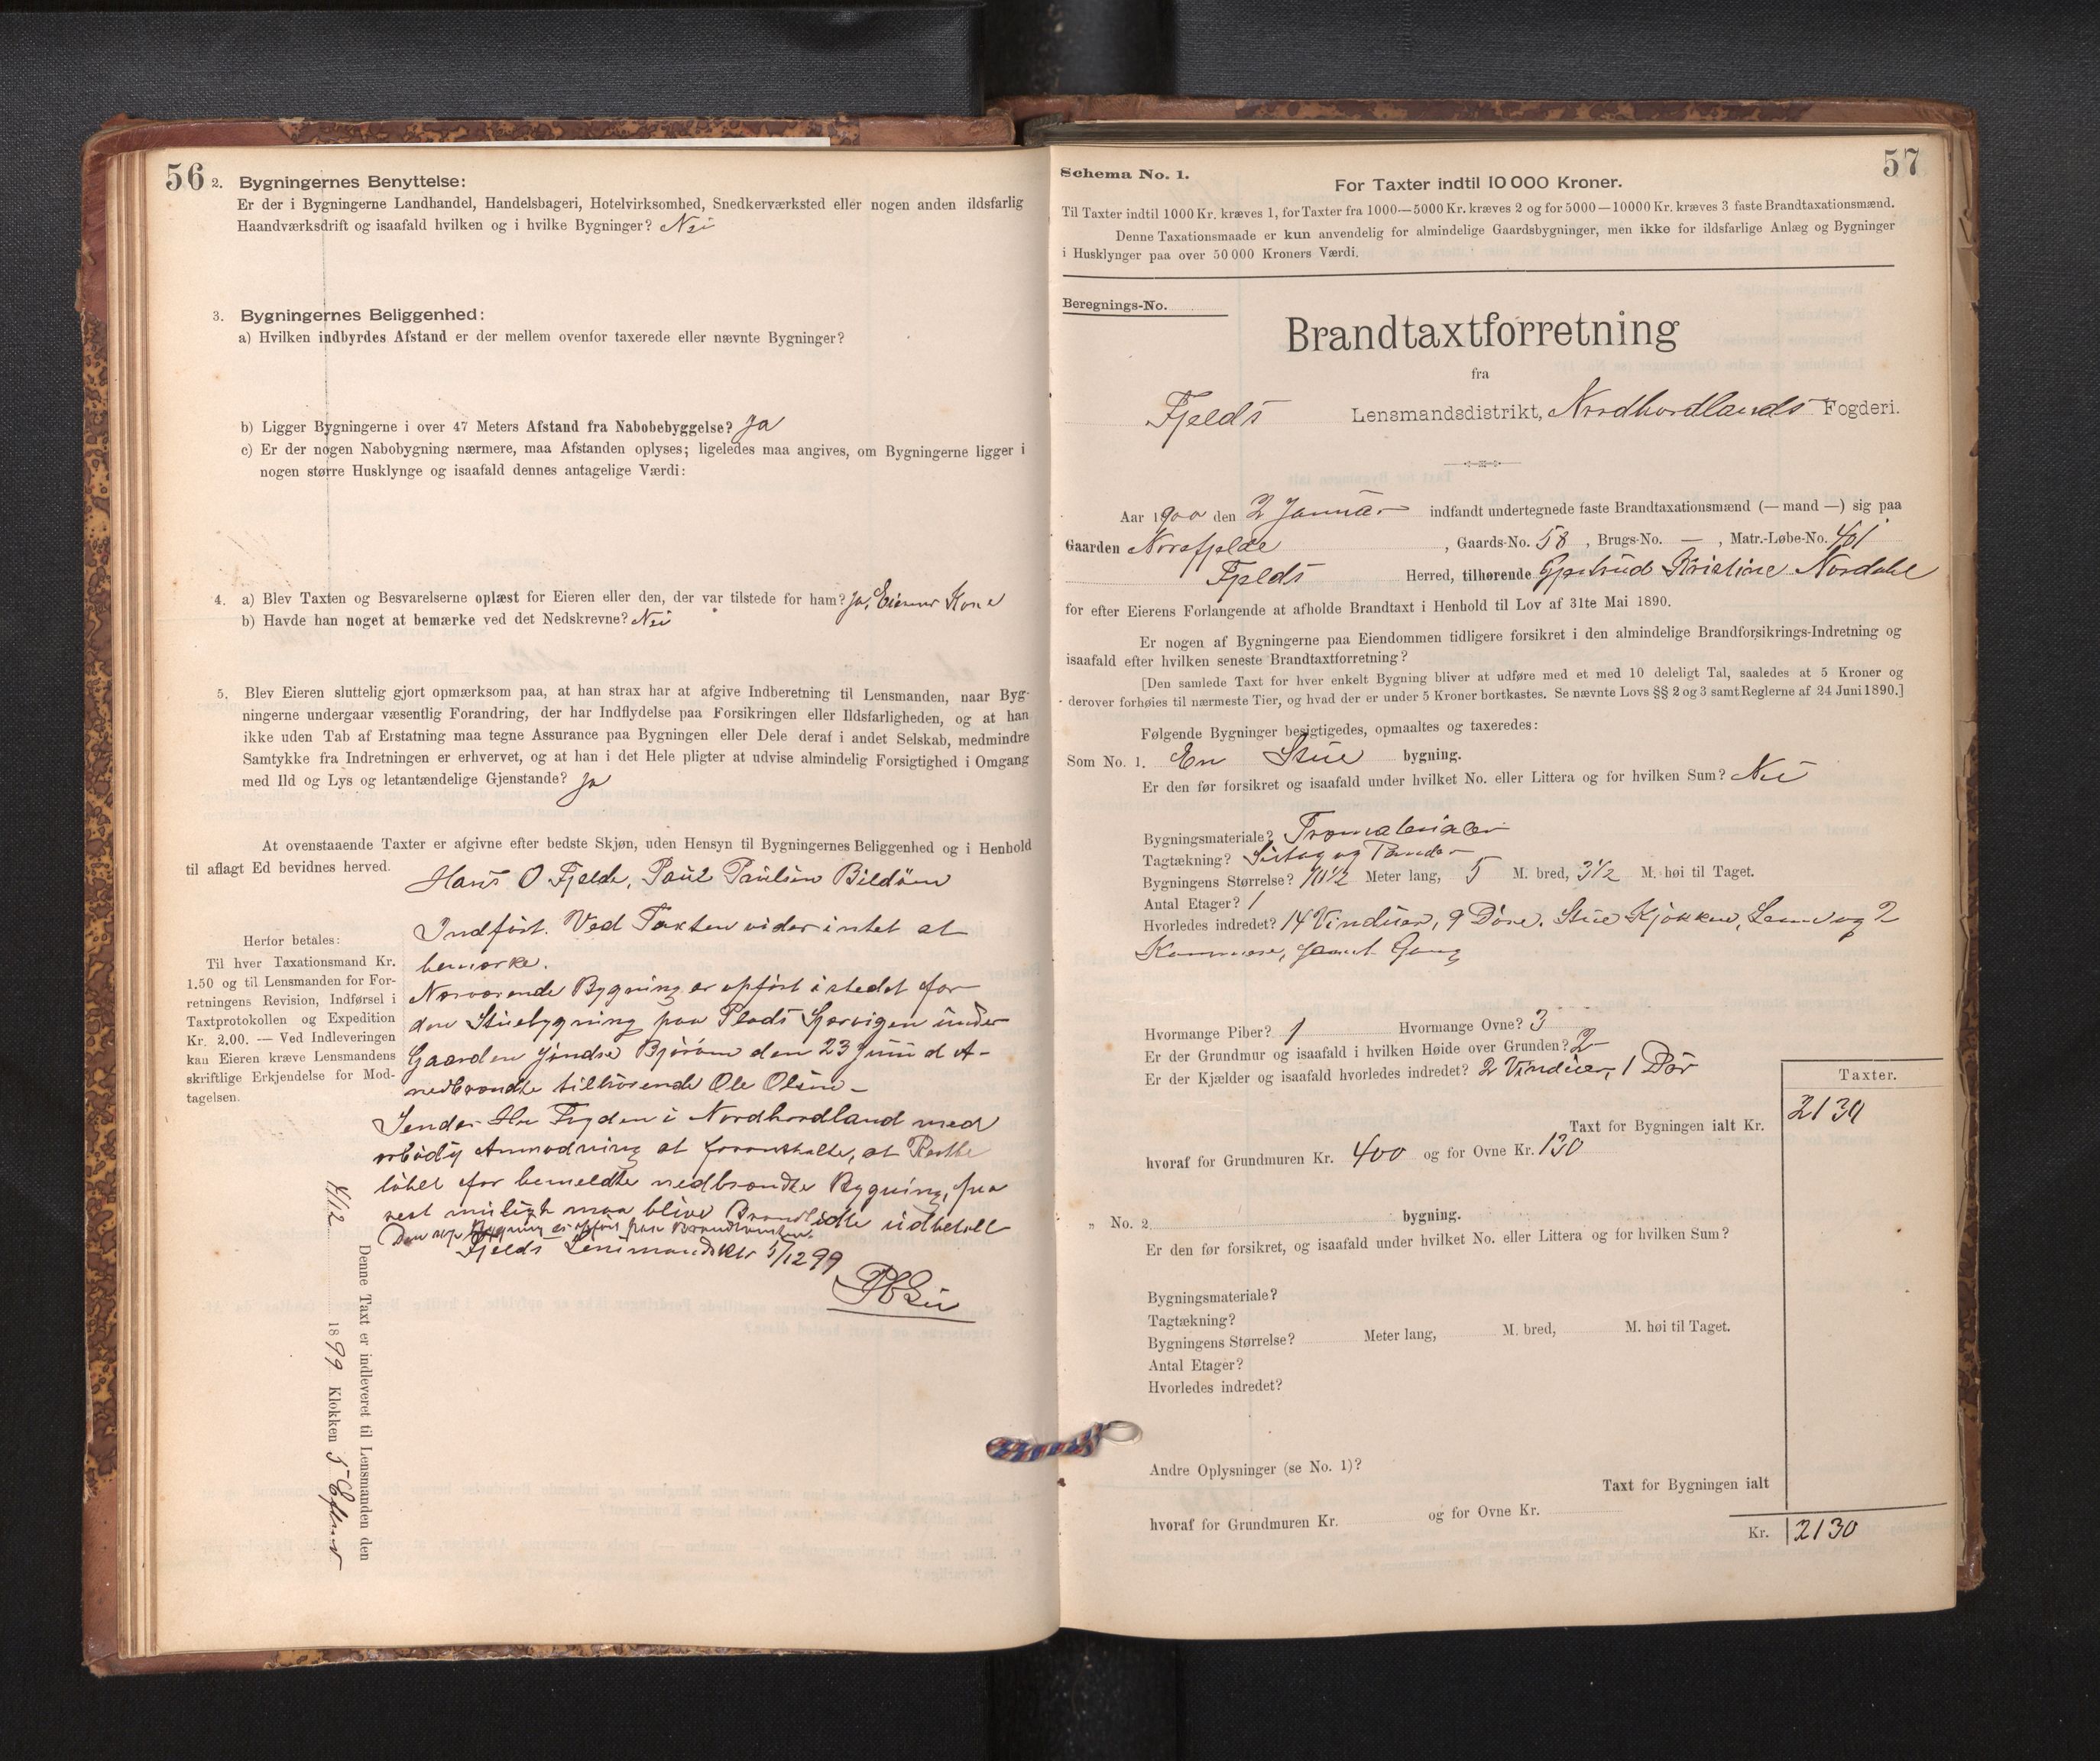 56
2. Bygningernes Benyttelse:
Er der i Bygningerne Landhandel, Handelsbageri, Hotelvirksomhed, Snedkerværksted eller nogen anden ildsfarlig
Haandværksdrift og isaafald hvilken og i hvilke Bygninger? Nei
3. Bygningernes Beliggenhed:
a) Hvilken indbyrdes Afstand er der mellem ovenfor taxerede eller nævnte Bygninger?
b) Ligger Bygningerne i over 47 Meters Afstand fra Nabobebyggelse? Ja
c) Er der nogen Nabobygning nærmere, maa Afstanden oplyses; ligeledes maa angives, om Bygningerne ligger i
nogen større Husklynge og isaafald dennes antagelige Værdi:
4. a) Blev Taxten og Besvarelserne oplæst for Eieren eller den, der var tilstede for ham? Ja, Eierens Kone
b) Havde han noget at bemærke ved det Nedskrevne? Nei
5. Blev Eieren sluttelig gjort opmærksom paa, at han strax har at afgive Indberetning til Lensmanden, naar Byg-
ningerne undergaar væsentlig Forandring, der har Indflydelse paa Forsikringen eller Ildsfarligheden, og at han
ikke uden Tab af Erstatning maa tegne Assurance paa Bygningen eller Dele deraf i andet Selskab, medmindre
Samtykke fra Indretningen er erhvervet, og at han i det Hele pligter at udvise almindelig Forsigtighed i Omgang
med Ild og Lys og letantændelige Gjenstande? Ja
At ovenstaaende Taxter er afgivne efter bedste Skjøn, uden Hensyn til Bygningernes Beliggenhed og i Henhold
til aflagt Ed bevidnes herved.
Hans O Fjelde, Poul Paulsen Bildöen
Herfor betales:
Til hver Taxationsmand Kr.
1.50 og til Lensmanden for For-
retningens Revision, Indførsel i
Taxtprotokollen og Expedition
Kr. 2.00. — Ved Indleveringen
kan Eieren kræve Lensmandens
skriftlige Erkjendelse for Mod-
tagelsen.
Indført. Ved Taxten vides intet at
bemærke.
Nærværende Bygning er opført istedet for
den Stuebygning paa Plads under
Gaarden Björöen den 23 Juni d A-
nedbrændte tilhörende Ole Olsen -
Sendes Hr Fogden i Nordhordland med
ærbödig Anmodning at foranstalte, at
löbet for bemeldte nedbrændte Bygning, paa
mulig maa blive udbetalt
Den nye Bygning er opført paa Brandtomten.
Fjelds Lensmandsktr 5/12 99
Denne Taxt er indleveret til Lensmanden den
4/12 1899 Klokken 5 Efterm
57
Schema No. 1.
For Taxter indtil 10 000 Kroner.
Til Taxter indtil 1000 Kr. kræves 1, for Taxter fra 1000—5000 Kr. kræves 2 og for 5000—10000 Kr. kræves 3 faste Brandtaxationsmænd.
Denne Taxationsmaade er kun anvendelig for almindelige Gaardsbygninger, men ikke for ildsfarlige Anlæg og Bygninger
i Husklynger paa over 50 000 Kroners Værdi.
Beregnings-No.
Brandtaxtforretning
fra
Fjelds Lensmandsdistrikt, Nordhordlands Fogderi.
Aar 1900 den 2 Januar indfandt undertegnede faste Brandtaxationsmænd (— mand —) sig paa
Gaarden Norefjelde, Gaards-No. 58, Brugs-No. —, Matr.-Løbe-No. 401
Fjelds Herred, tilhørende Gjertrud Kristine Nordahl
for efter Eierens Forlangende at afholde Brandtaxt i Henhold til Lov af 31te Mai 1890.
Er nogen af Bygningerne paa Eiendommen tidligere forsikret i den almindelige Brandforsikrings-Indretning og
isaafald efter hvilken seneste Brandtaxtforretning?
[Den samlede Taxt for hver enkelt Bygning bliver at udføre med et med 10 deleligt Tal, saaledes at 5 Kroner og
derover forhøies til nærmeste Tier, og hvad der er under 5 Kroner bortkastes. Se nævnte Lovs §§ 2 og 3 samt Reglerne af 24 Juni 1890.]
Følgende Bygninger besigtigedes, opmaaltes og taxeredes:
Som No. 1. En Stue bygning.
Er den før forsikret og isaafald under hvilket No. eller Littera og for hvilken Sum? Nei
Bygningsmateriale? Træmaterialer
Tagtækning? og Pander
Bygningens Størrelse? 10 1/2 Meter lang, 5 M. bred, 3 1/2 M. høi til Taget.
Antal Etager? 1
Hvorledes indredet? 14 Vinduer, 9 Döre. Stue Kjökken, og 2
Kammere, samt Gang
Hvormange Piber? 1 Hvormange Ovne? 3
Er der Grundmur og isaafald i hvilken Høide over Grunden? 2
Er der Kjælder og isaafald hvorledes indredet? 2 Vinduer, 1 Dör
Taxter.
Taxt for Bygningen ialt Kr. 2130
hvoraf for Grundmuren Kr. 400 og for Ovne Kr. 130
„ No. 2 bygning.
Er den før forsikret, og isaafald under hvilket No. eller Littera og for hvilken Sum?
Bygningsmateriale?
Tagtækning?
Bygningens Størrelse? Meter lang, M. bred, M. høi til Taget.
Antal Etager?
Hvorledes indredet?
Andre Oplysninger (se No. 1)?
Taxt for Bygningen ialt
hvoraf for Grundmuren Kr. og for Ovne Kr.
Kr. 2130